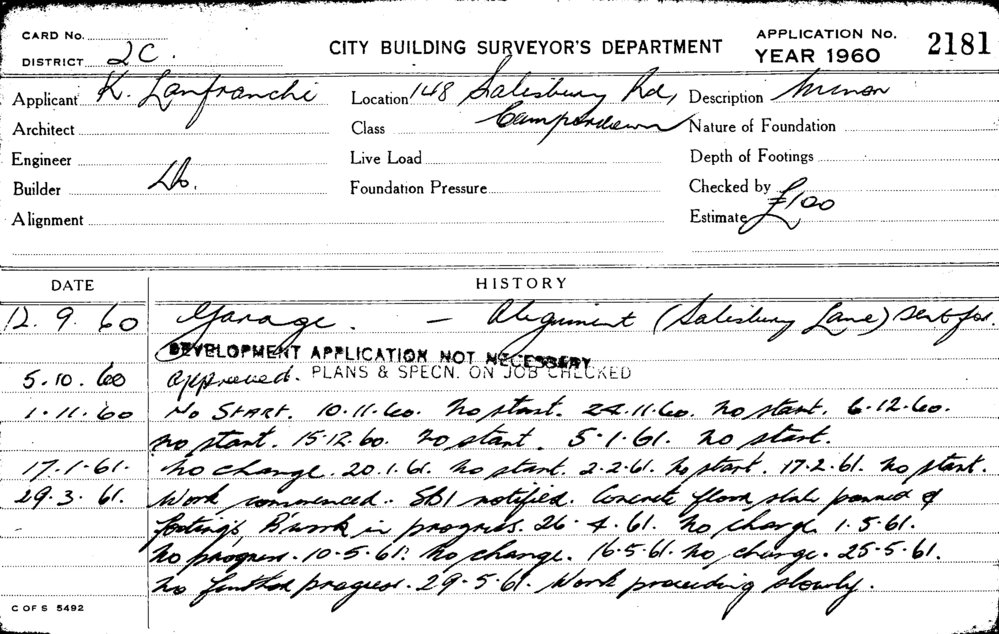 CARD No.
DISTRICT 2C.
CITY BUILDING SURVEYOR'S DEPARTMENT
APPLICATION No. 2181
YEAR 1960
Applicant K. Lanfranchi Location 148 Salisbury Rd, Description Minor
Architect Class Camperdown Nature of Foundation
Engineer Live Load Depth of Footings
Builder Do. Foundation Pressure Checked by
Alignment Estimate £100
DATE HISTORY
12. 9. 60 Garage. - Alignment (Salisbury Lane) sent for.
DEVELOPMENT APPLICATION NOT NECESSARY
5. 10. 60 approved. PLANS & SPECN. ON JOB CHECKED
1. 11. 60 No START. 10.11.60. No start. 24.11.60. No start. 6.12.60.
no start. 15.12.60. no start. 5.1.61. no start.
17.1.61. no change. 20.1.61. no start. 2.2.61. No start. 17.2.61. no start.
29.3.61. Work commenced. SBI notified. Concrete floor slab poured &
footings, B'work in progress. 26.4.61. No change 1.5.61.
no progress. 10.5.61. No change. 16.5.61. no change. 25.5.61.
no further progress. 29.5.61. Work proceeding slowly.
C OF S 5492